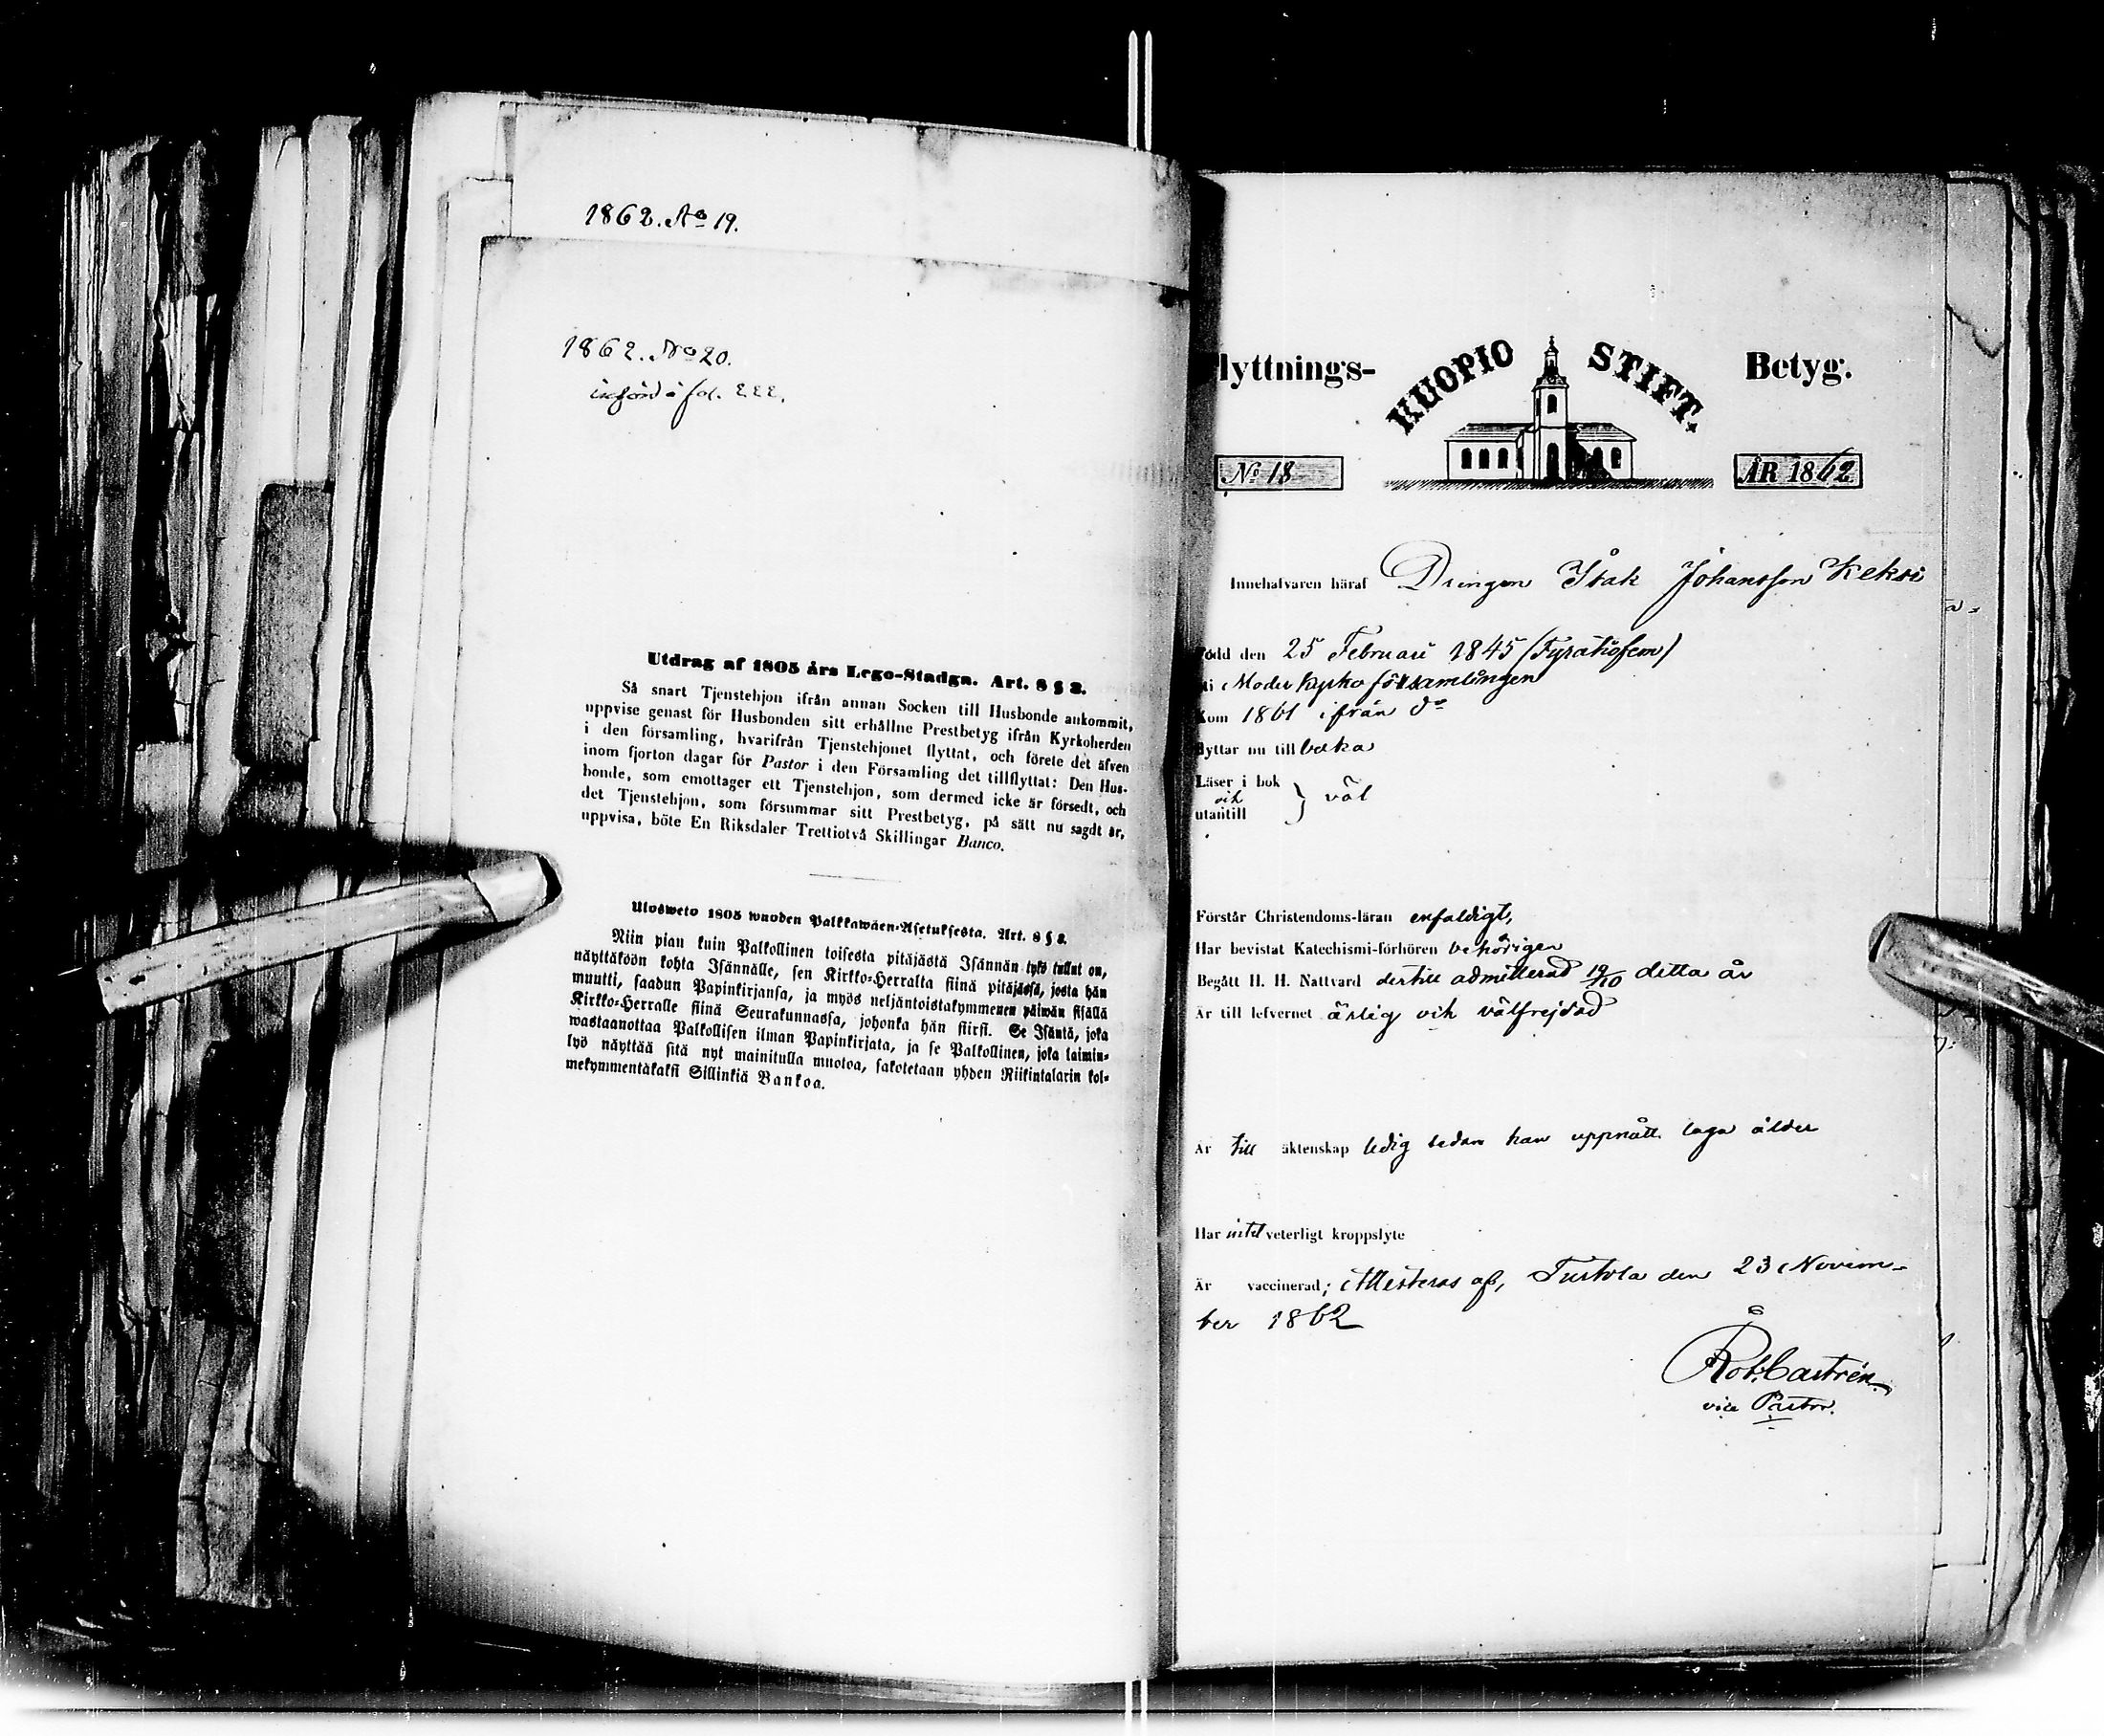 1862. No 19.
1862. No 20.
införd å fol. 222.
Utdrag af 1805 års Lego-Stadga. Art. 8 § 2.
Så snart Tjenstehjon ifrån annan Socken till Husbonde ankommit,
uppvise genast för Husbonden sitt erhållne Prestbetyg ifrån Kyrkoherden
i den församling, hvarifrån Tjenstehjonet flyttat, och förete det äfven
inom fjorton dagar för Pastor i den Församling det tillflyttat: Den Hus-
bonde, som emottager ett Tjenstehjon, som dermed icke är försedt, och
det Tjenstehjon, som försummar sitt Prestbetyg, på sätt nu sagdt är,
uppvisa, böte En Riksdaler Trettiotvå Skillingar Banco.
Ulosweto 1805 wuoden Palkkawäen-Asetuksesta. Art. 8 § 2.
Niin pian kuin Palkollinen toisesta pitäjästä Isännän tykö tullut on,
näyttäköön kohta Isännälle, sen Kirkko-Herralta siinä pitäjässä, josta hän
muutti, saadun Papinkirjansa, ja myös neljäntoistakymmenen päiwän sisällä
Kirkko-Herralle siinä Seurakunnassa, johonka hän siirsi. Se Isäntä, joka
wastaanottaa Palkollisen ilman Papinkirjata, ja se Palkollinen, joka laimin-
lyö näyttää sitä nyt mainitulla muotoa, sakotetaan yhden Riikintalarin kol-
mekymmentäkaksi Sillinkiä Bankoa.
lyttnings- KUOPIO STIFT. Betyg.
No 18 ÅR 1862
Innehafvaren häraf Drängen Isak Johansson Keksi
född den 25 Februari 1845 (Tyrähöfem)
i Moderkyrko församlingen
Kom 1861 ifrån do
flyttar nu tillbaka
Läser i bok
och } väl
utantill
Förstår Christendoms-läran enfaldigt,
Har bevistat Katechismi-förhören behörigen
Begått H. H. Nattvard dertill admitterad 19/10 detta år
Är till lefvernet ärlig och välfrejdad
Är till äktenskap ledig sedan han uppnått laga ålder
Har intet veterligt kroppslyte
Är vaccinerad; Attesteras af, Turtola den 23 Novem-
ber 1862
Rob. Castrén.
vice Pastor.